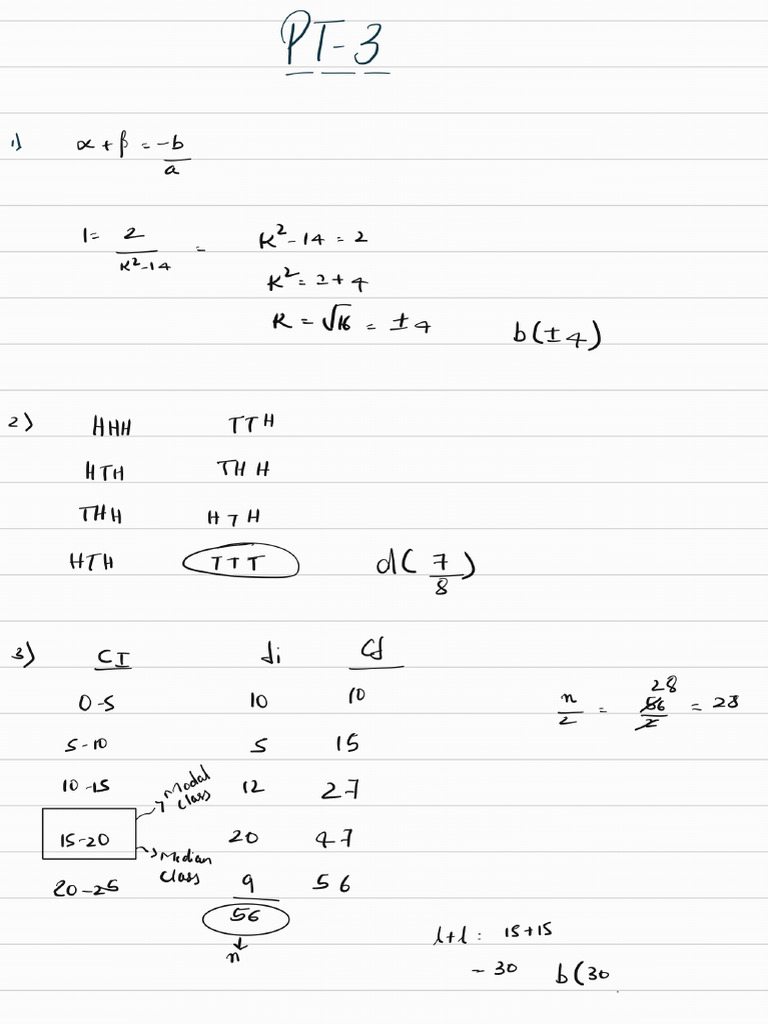 PT-3
1) α + β = -b/a
1 = 2/K²-14 = K²-14 = 2
K² = 2+4
K = √16 = ±4 b(±4)
2) HHH TTH
HTH THH
THH HTH
HTH TTT d(7/8)
3) CI fi Cf
0-5 10 10 n/2 = 56/2 28 = 28
5-10 5 15
10-15 Modal class 12 27
15-20 20 47
Median class
20-25 9 56
56
n
l+l: 15+15
- 30 b(30